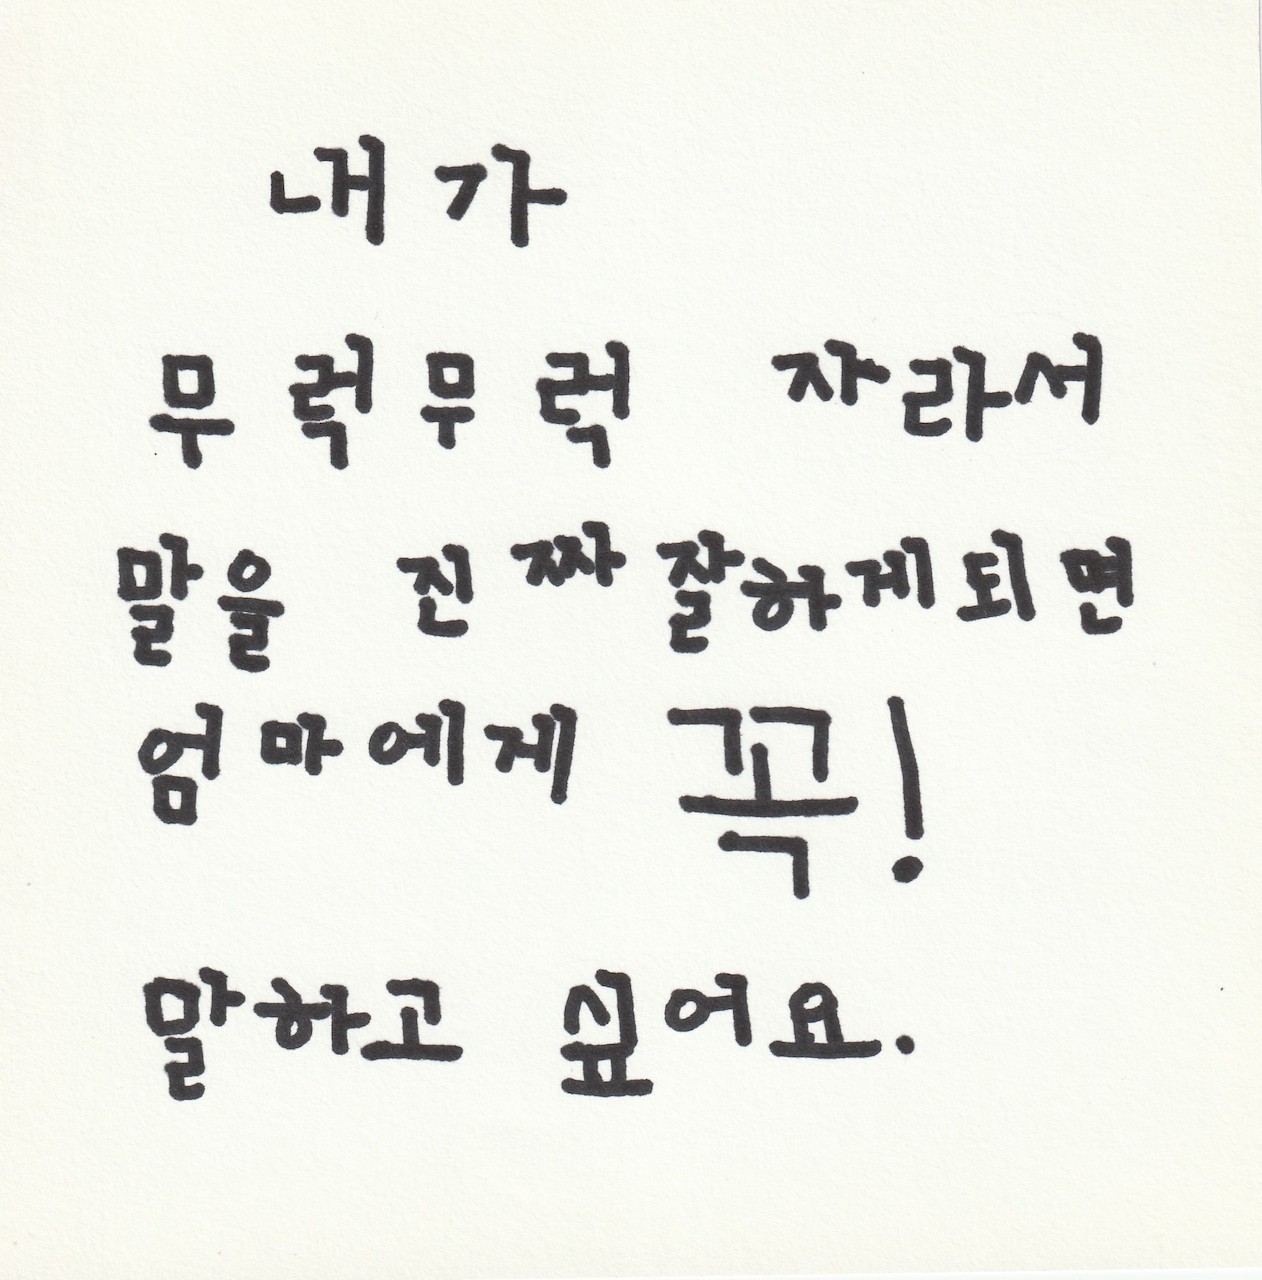 내가
무럭무럭 자라서
말을 진짜 잘하게되면
엄마에게 꼭!
말하고 싶어요.